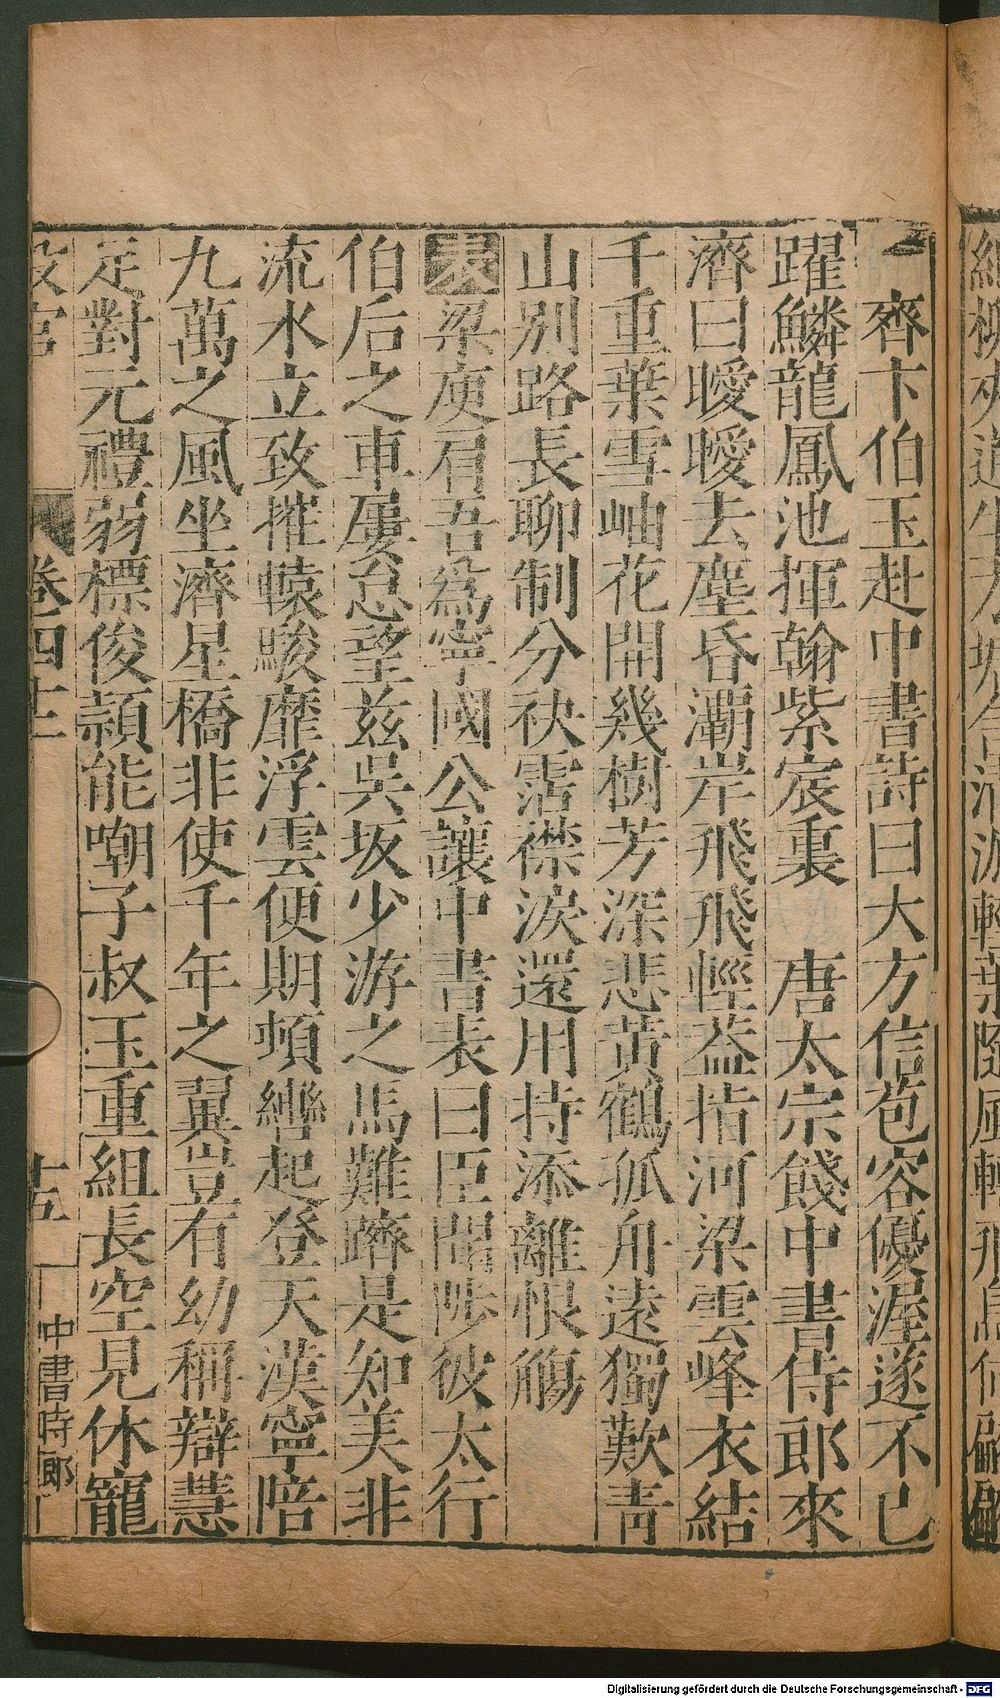 齊卞伯玉赴中書詩曰大方信苞容優渥遂不已
躍鱗龍鳳池揮翰紫宸裏　唐太宗餞中書侍郎來
濟曰曖曖去塵昏灞岸飛飛輕蓋指河梁雲峰衣結
千重葉雪岫花開幾樹芳深悲黃鶴孤舟遠獨歎青
山別路長聊制分袂霑襟淚還用持添離恨觴
表梁庾肩吾為寧國公讓中書表曰臣聞陟彼太行
伯后之車屢怠望茲吳坂少游之馬難躋是知美非
流水立致摧轅駿靡浮雲便期頓轡起登天漢寧陪
九萬之風坐濟星橋非使千年之翼豈有幼稱辯慧
足對元禮弱標俊穎能嘲子叔玉重組長空見休寵
設官
卷四十
十五
中書時郎
Digitalisierung gefördert durch die Deutsche Forschungsgemeinschaft - DFG